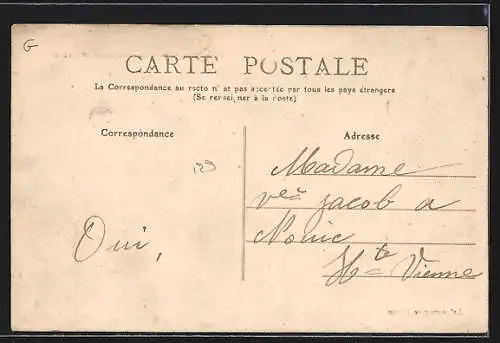 G
CARTE POSTALE
La Correspondance au recto n'est pas acceptée par tous les pays étrangers
(Se renseigner à la Poste)
Correspondance
Adresse
129
Madame
vve Jacob a
Nouic
Hte Vienne
Oui,